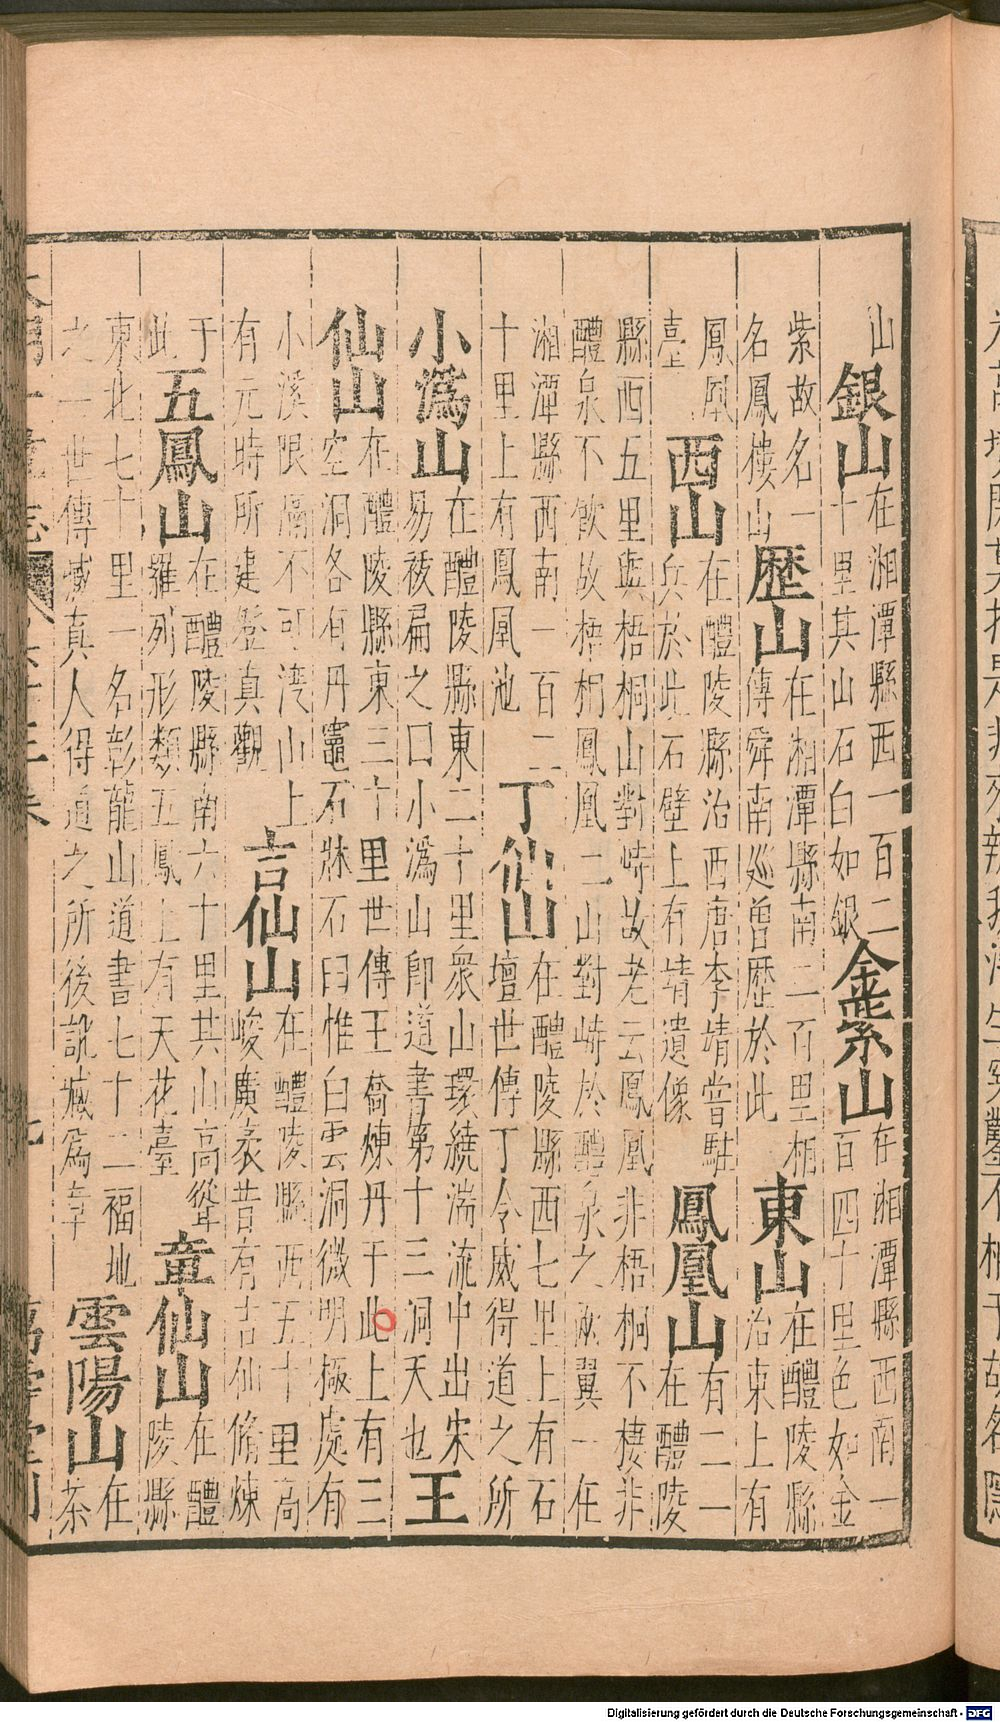 山銀山在湘潭縣西一百二十里其山石白如銀金紫山在湘潭縣西南一百四十里色如金
紫故名一名鳳樓山歷山在湘潭縣南二百里相傳舜南廵曾歷於此東山在醴陵縣治東上有
鳳凰臺西山在醴陵縣治西唐李靖嘗駐兵於此石壁上有靖遺像鳳凰山有二一在醴陵
縣西五里與梧桐山對峙故老云鳳凰非梧桐不棲非醴泉不飲故梧桐鳳凰二山對峙於醴泉之兩翼一在
湘潭縣西南一百二十里上有鳳凰池丁仙山在醴陵縣西七里上有石壇世傳丁令威得道之所
小溈山在醴陵縣東二十里衆山環繞湍流中出宋易袚扁之曰小溈山即道書第十三洞天也王
仙山在醴陵縣東三十里世傳王喬煉丹于此上有三空洞各有丹竈石牀石臼惟白雲洞微明極處有
小溪限隔不可灣山上有元時所建登真觀言仙山在醴陵縣西五十里高峻廣袤昔有言仙脩煉
于此五鳳山在醴陵縣南六十里其山高聳羅列形類五鳳上有天花臺章仙山在醴陵縣
東北七十里一名彰龍山道書七十二福地之一世傳臧真人得道之所後訛臧爲章雲陽山在茶
大明一統志 六十三卷 九 萬壽堂刊
Digitalisierung gefördert durch die Deutsche Forschungsgemeinschaft - DFG